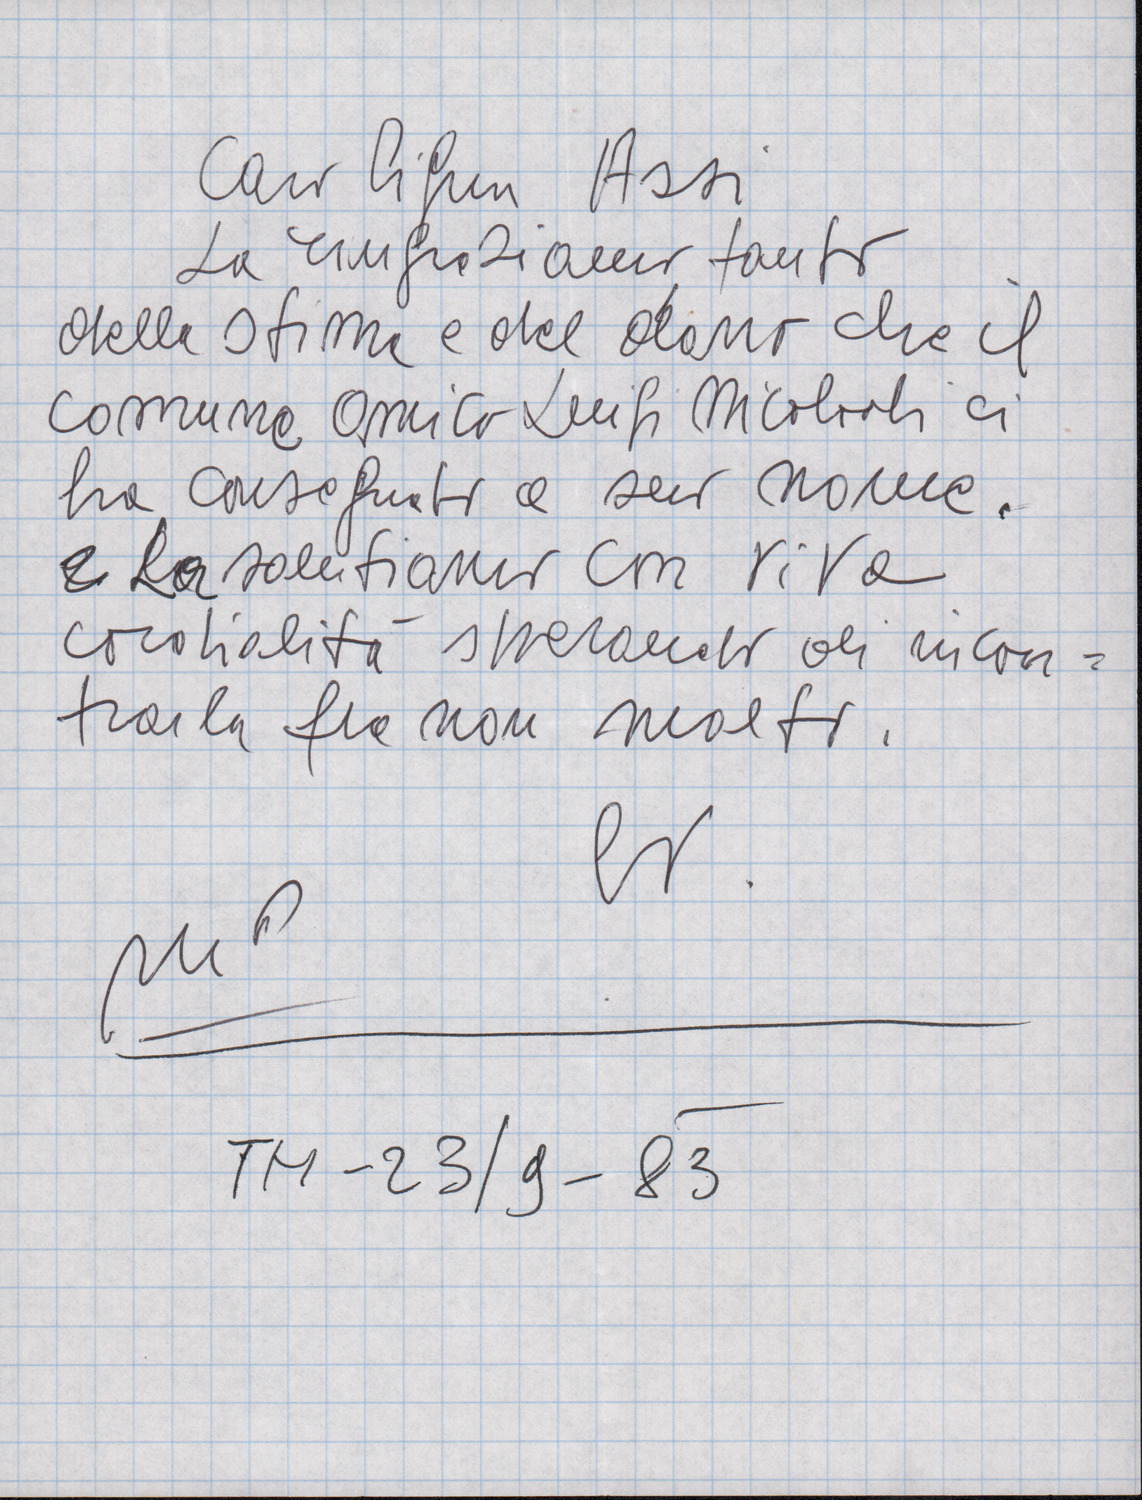 Caro Signor Assi
La ringraziamo tanto
della stima e del dono che il
comune amico Luigi Nicolodi ci
ha consegnato a suo nome.
e La salutiamo con viva
cordialità sperando di incon=
trarla fra non molto.
TM - 23/9 - 83